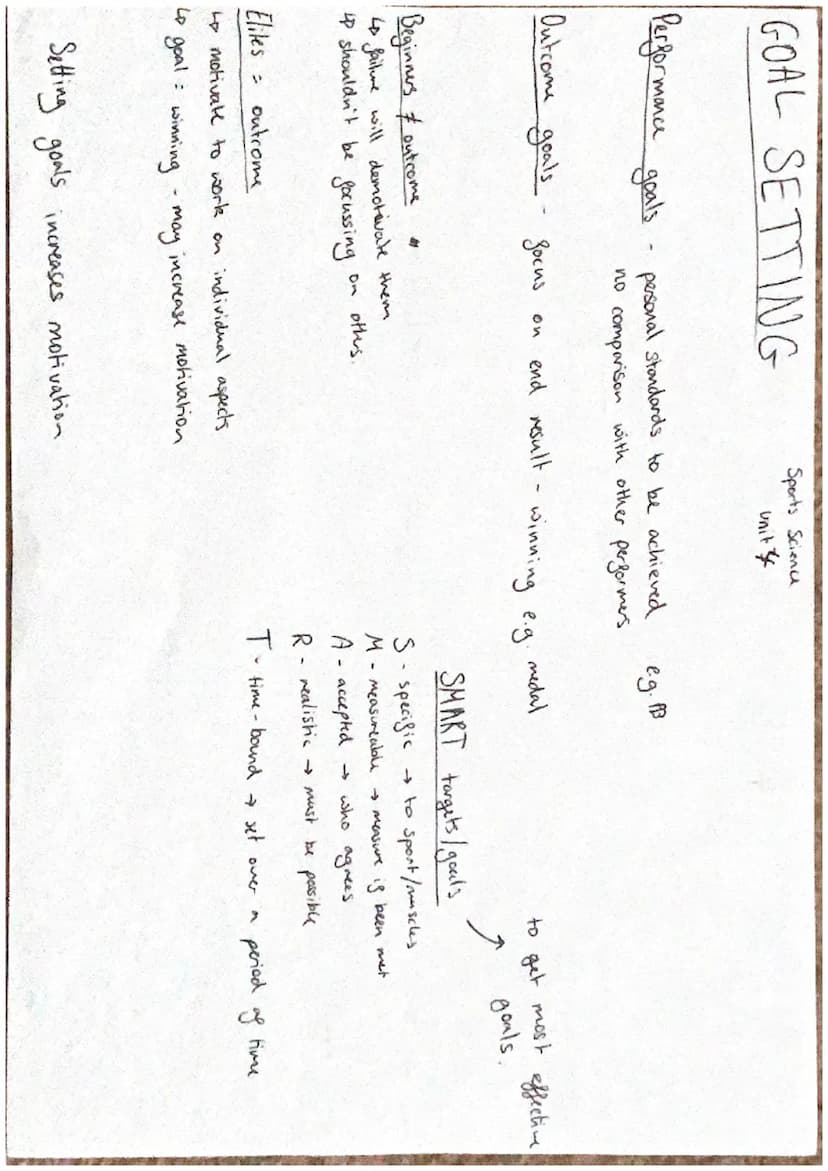 GOAL SETTING
Sports Science
Unit 4
Performance goals - personal standards to be achieved e.g. PB
no comparison with other performers
Outcome goals - focus on end result - winning e.g. medal
to get most effective
goals.
SMART targets/goals
S - specific → to sport/muscles
M - measureable → measure if been met
A - accepted → who agrees
R - realistic → must be possible
T - time-bound → set over a period of time
Beginners ≠ outcome
↳ failure will demotivate them
↳ shouldn't be focussing on others.
Elites = outcome
↳ motivate to work on individual aspects
↳ goal = winning - may increase motivation
Setting goals increases motivation